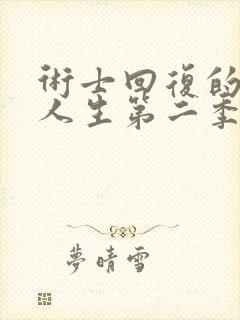 術士回復的
人生第二季
夢晴雪